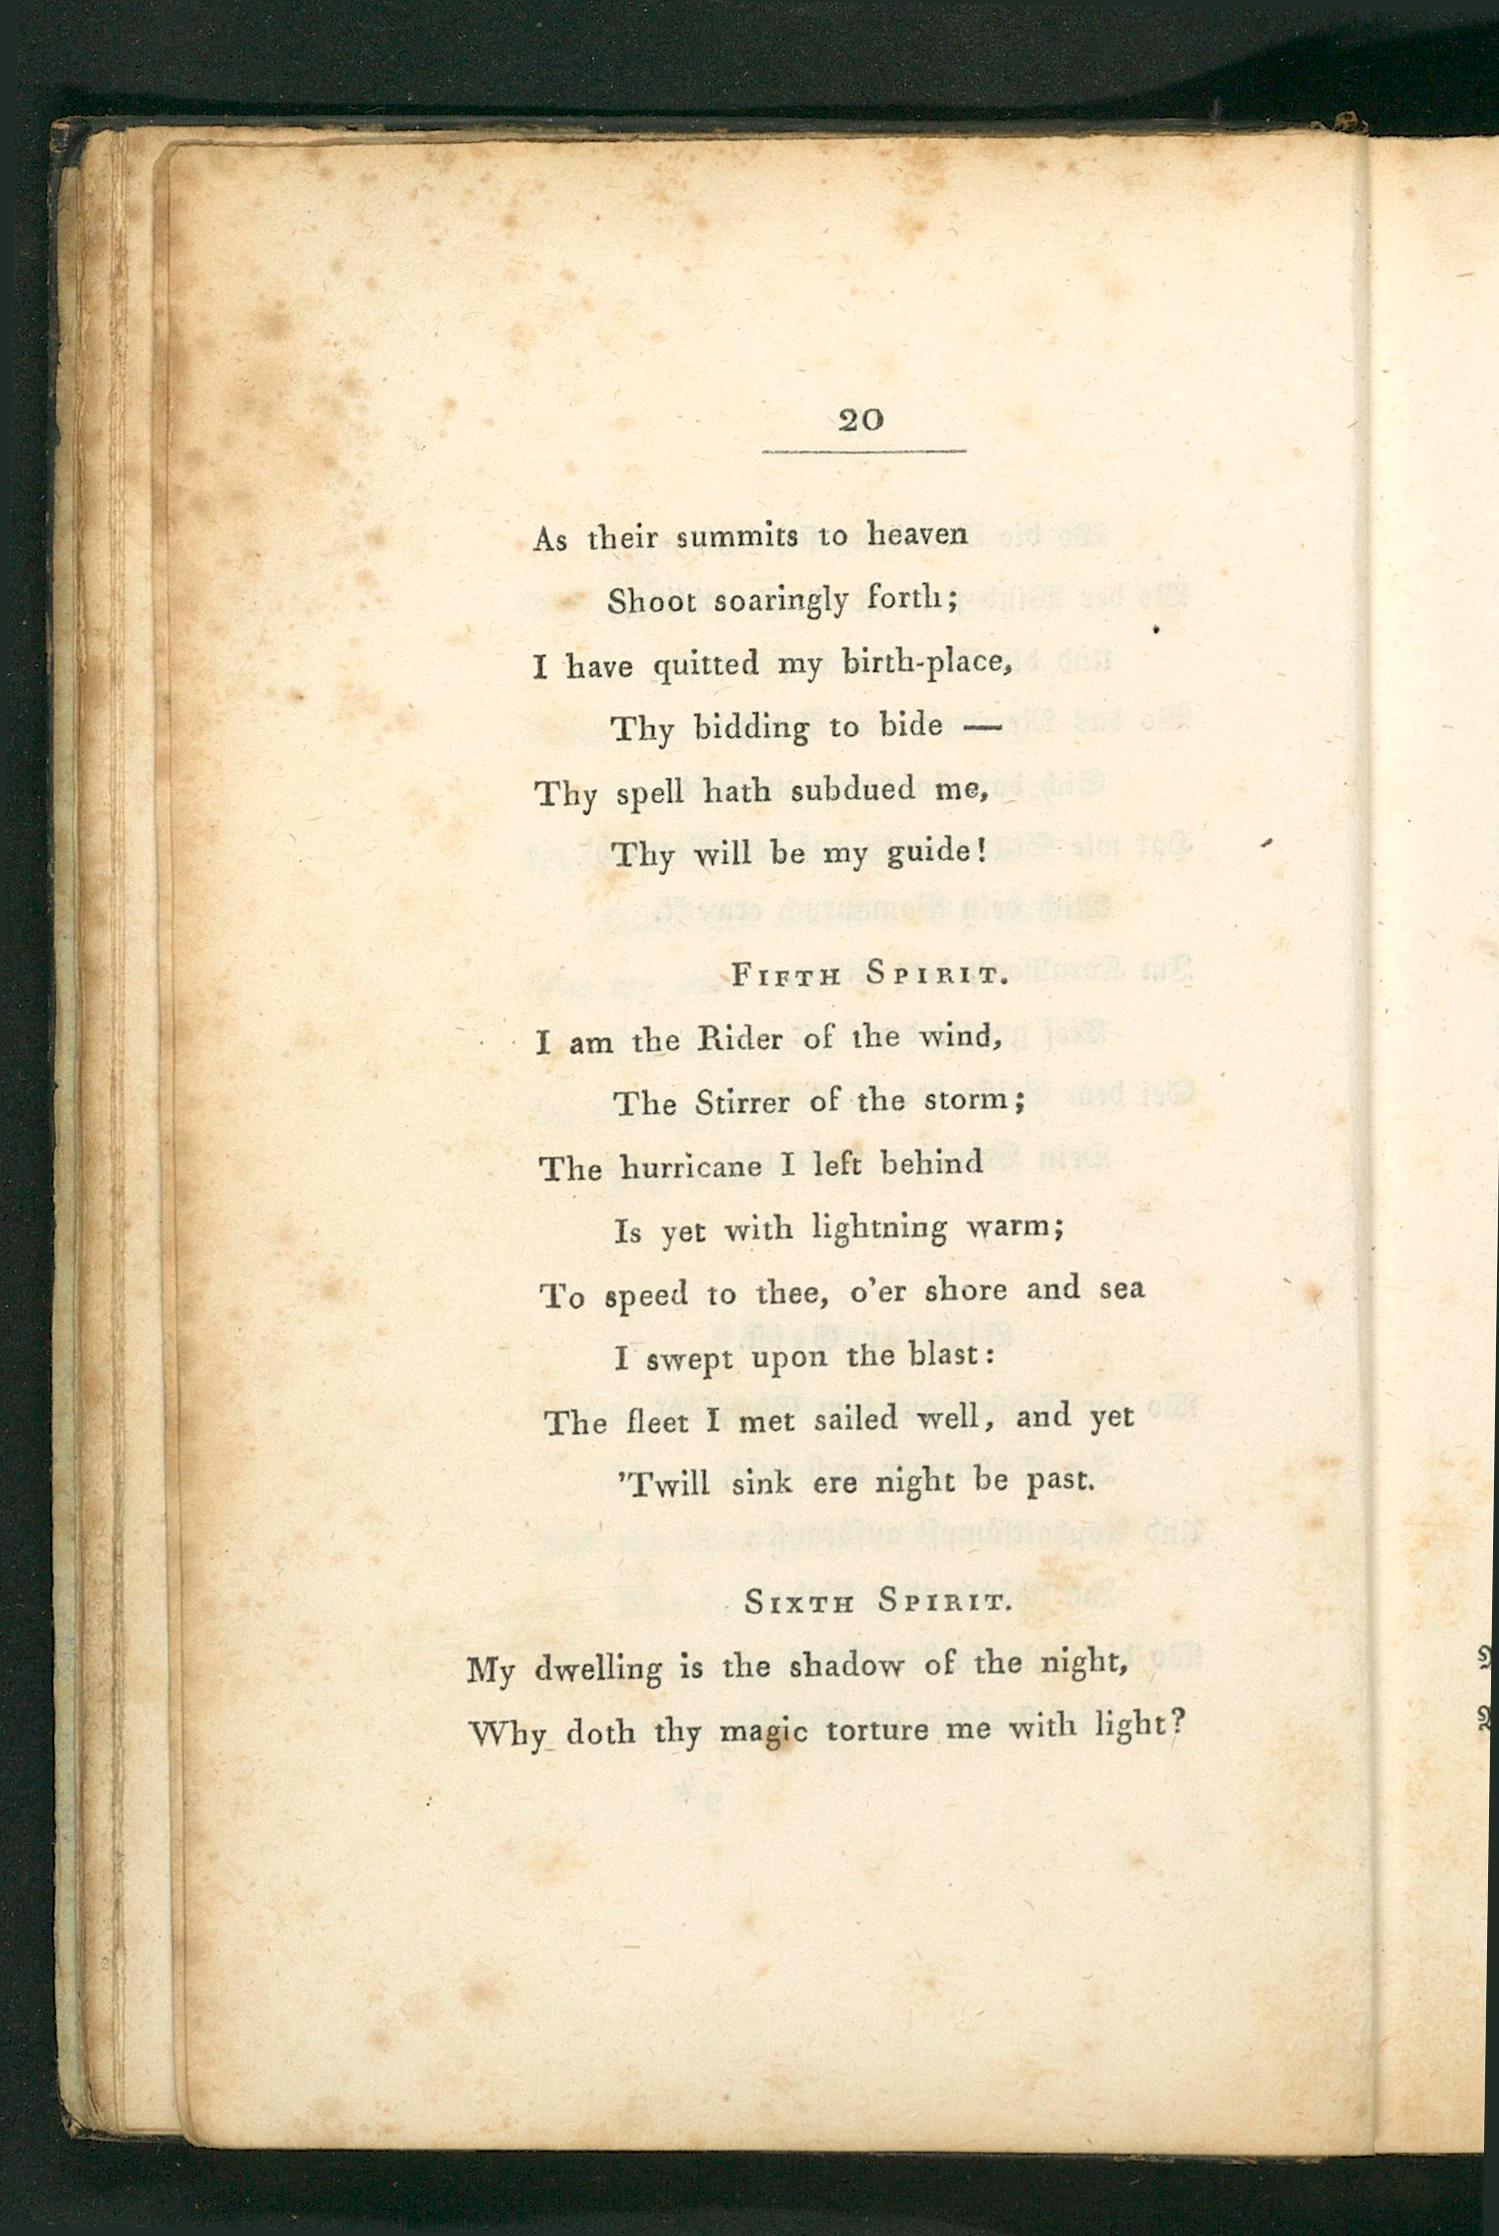 20
As their summits to heaven
Shoot soaringly forth;
I have quitted my birth-place,
Thy bidding to bide —
Thy spell hath subdued me,
Thy will be my guide!
Fifth Spirit.
I am the Rider of the wind,
The Stirrer of the storm;
The hurricane I left behind
Is yet with lightning warm;
To speed to thee, o'er shore and sea
I swept upon the blast:
The fleet I met sailed well, and yet
'Twill sink ere night be past.
Sixth Spirit.
My dwelling is the shadow of the night,
Why doth thy magic torture me with light?